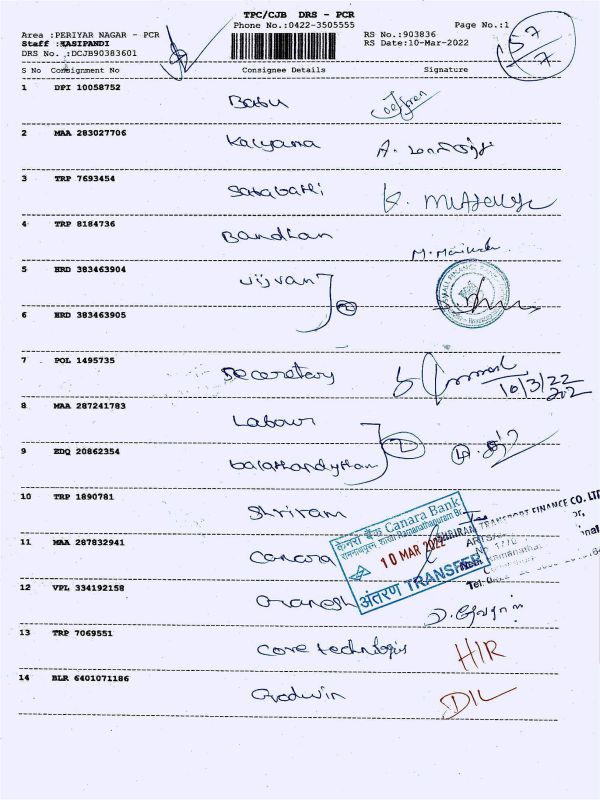 TPC/CJB DRS - PCR
Phone No.:0422-3505555
Page No.:1
Area :PERIYAR NAGAR - PCR
RS No.:903836
Staff :KASIPANDI
RS Date:10-Mar-2022
DRS No. :DCJB90383601
57
7
S No Consignment No Consignee Details Signature
1 DPI 10058752 Babu
2 MAA 283027706 Kalyana
3 TRP 7693454 Sarabathi
4 TRP 8184736 Bandhan
5 HRD 383463904 Vijvan
2
6 HRD 383463905
7 POL 1495735 Secoretary
10/3/22
8 MAA 287241783 Labour
2
9 EDQ 20862354
10 TRP 1890781 Shriram
केनरा बैंक Canara Bank
SHRIRAM TRANSPORT FINANCE CO. LTD
11 MAA 287832941 Canara
10 MAR 2022
अंतरण TRANSFER
Tel:
12 VPL 334192158 Ganesh
13 TRP 7069551 Core technlogis HIR
14 BLR 6401071186 Godwin DIL